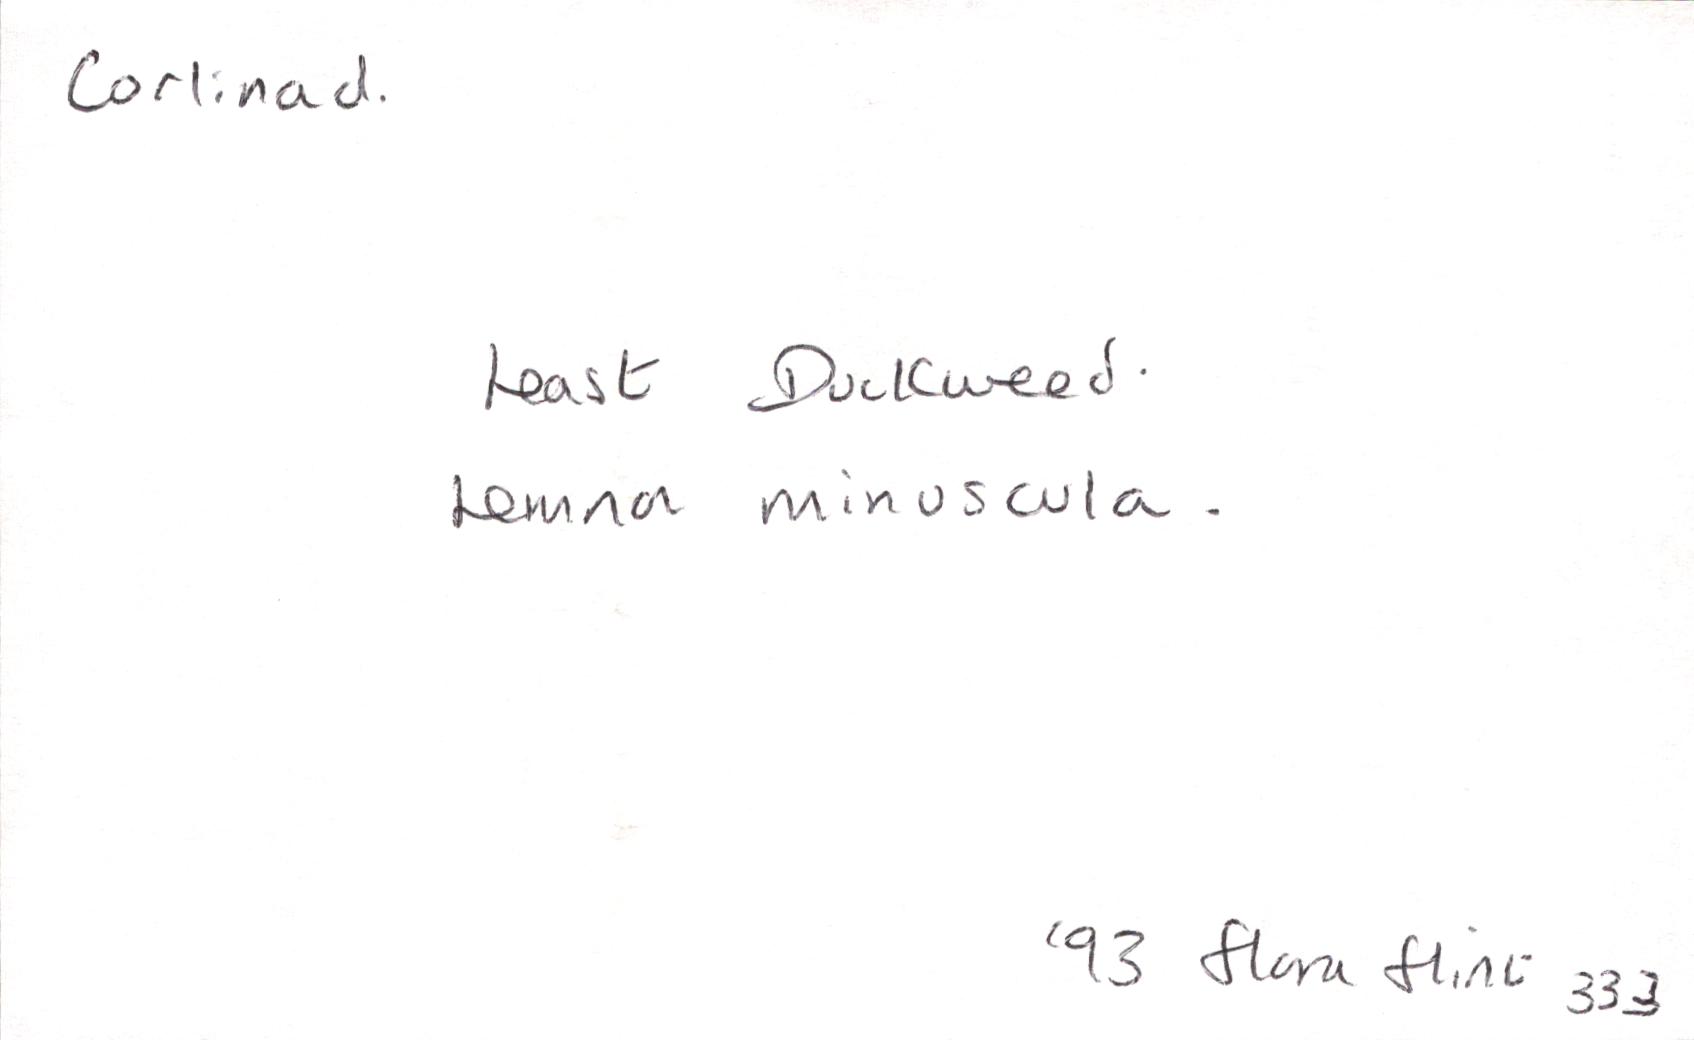 Corlinad.
Least Duckweed.
Lemna minuscula.
'93 flora flint 333